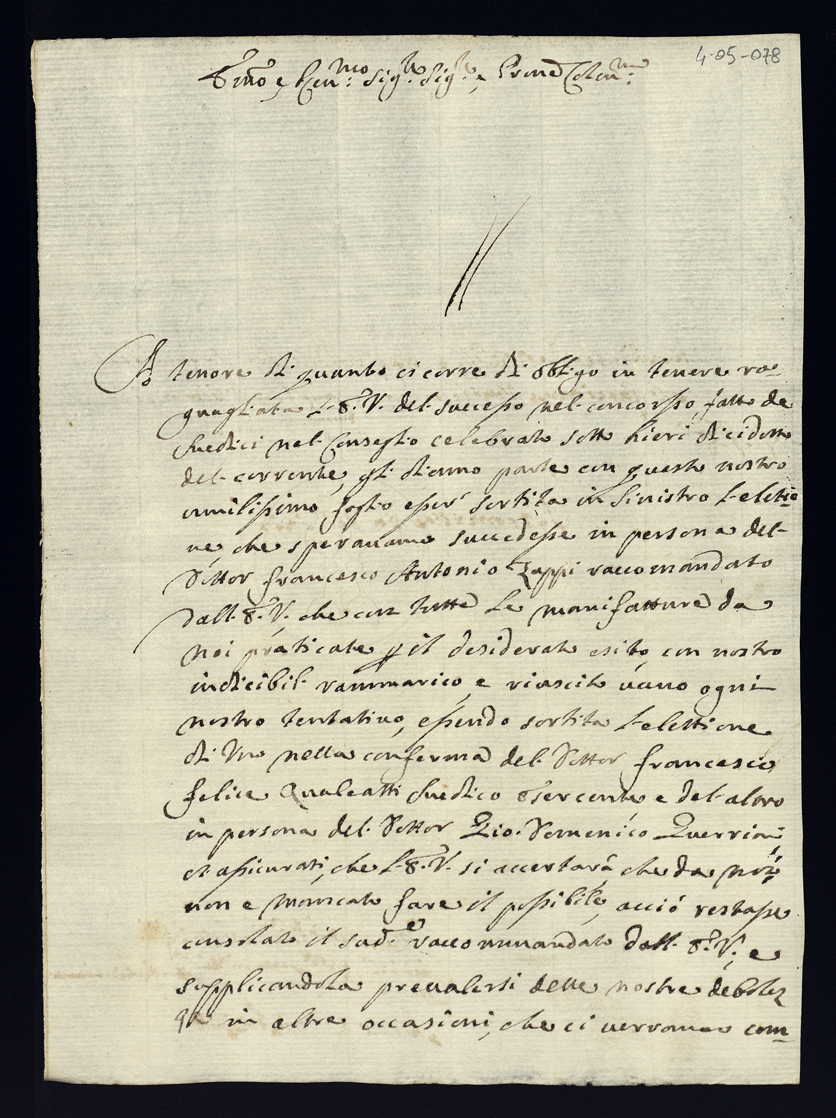 4-05-078
Emo e Renmo: Sigr: Sigr: e Prone Colenmo:
A tenore di quanto ci corre di obligo in tenere ra-
guagliata l'E. V. del successo nel concorso, fatto de
Medici nel Conseglio celebrato sotto hieri dicidotto
del corrente, gli diamo parte con questo nostro
umilissimo foglio esser sortita in sinistro l'eletio
ne, che speravamo succedesse in persona del-
Dottor Francesco Antonio Zappi raccomandato
dall'E. V., che con tutte le manifatture da
noi praticate p il desiderato esito, con nostro
indicibil rammarico, e riuscito vano ogni
nostro tentativo, essendo sortita l'elettione
di Uno nella conferma del Dottor Francesco
Felice Qualeatti Medico Esercente e del altro
in persona del Dottor Gio. Domenico Guerrini
et assicurati, che l'E. V. si accertarà che da noi
non e mancato fare il possibile, acciò restasse
consolato il sad.o raccommandato dall'E. V., e
supplicandola prevalersi delle nostre debolez
ze in altre occasioni, che ci verranno com-